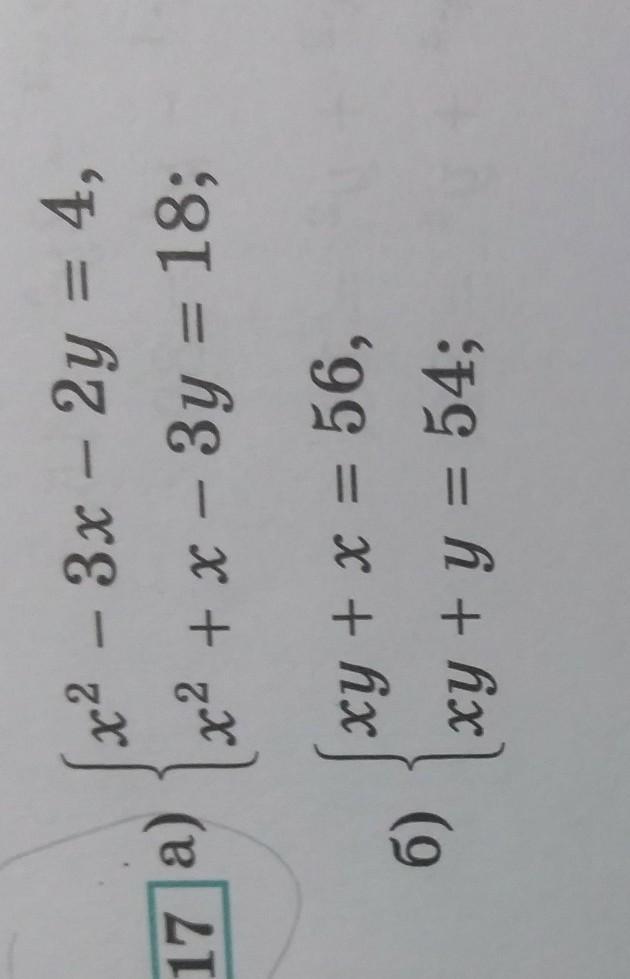 17 а) { x² − 3x − 2y = 4,
x² + x − 3y = 18;
б) { xy + x = 56,
xy + y = 54;